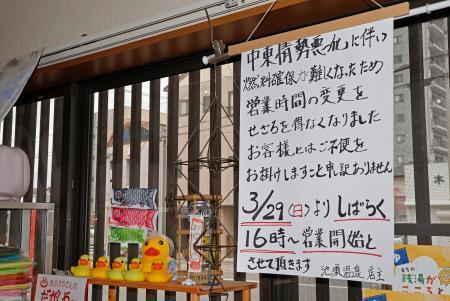 中東情勢悪化に伴い
燃料確保が難しくなったため
営業時間の変更を
せざるを得なくなりました
お客様にはご不便を
お掛けしますこと申訳ありません
3/29(日)より しばらく
16時〜営業開始と
させて頂きます
店主
銭湯が